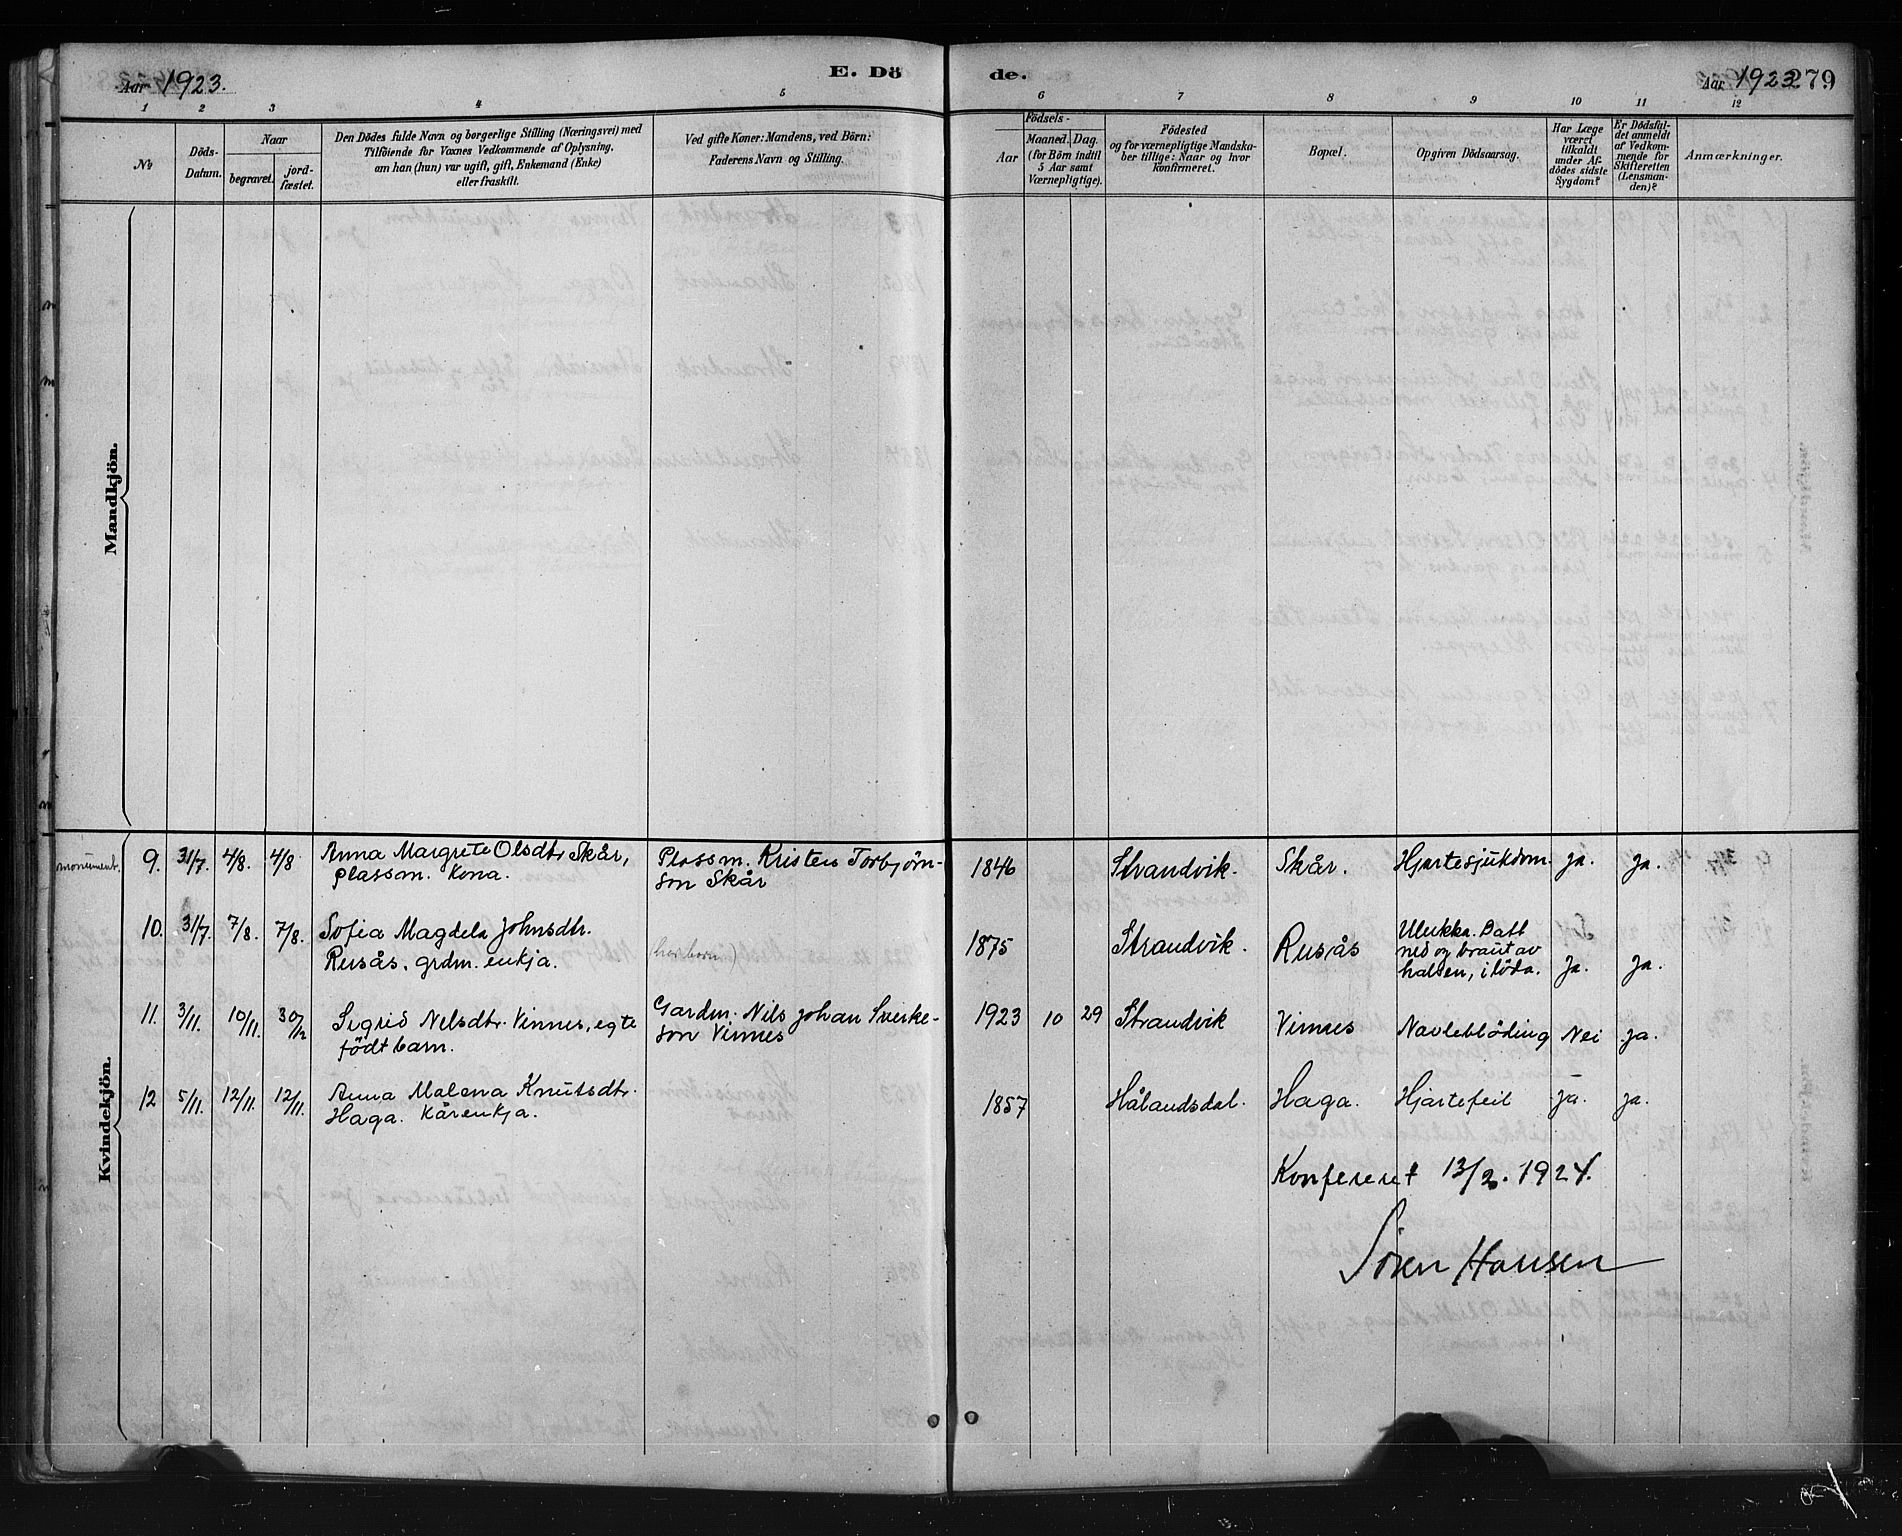 Aar 1923.
E. Dö
de.
Aar 1923 279
1 2 3 4 5 6 7 8 9 10 11 12
No
Döds-
Datum.
Naar
begravet.
jord-
fæstet.
Den Dödes fulde Navn og borgerlige Stilling (Næringsvei) med
Tilföiende for Voxnes Vedkommende af Oplysning,
om han (hun) var ugift, gift, Enkemand (Enke)
eller fraskilt.
Ved gifte Koner: Mandens, ved Börn:
Faderens Navn og Stilling.
Födsels-
Aar
Maaned. Dag.
(for Börn indtil
5 Aar samt
Værnepligtige).
Födested
og for værnepligtige Mandska-
ber tillige: Naar og hvor
konfirmeret.
Bopæl.
Opgiven Dödsaarsag.
Har Læge
været
tilkaldt
under Af-
dödes sidste
Sygdom?
Er Dödsfal-
det anmeldt
af Vedkom-
mende for
Skifteretten
(Lensman-
den)?
Anmærkninger.
Mandkjön.
Kvindekjön.
monument.
9. 31/7. 4/8. 4/8 Anna Margrete Olsdtr. Skår, Plassm. Kristen Torbjörn- 1846 Strandvik. Skår. Hjartesjukdom. ja. ja.
plassm. kona. son Skår
10. 31/7. 7/8. 7/8. Sofia Magdela Johnsdtr. 1875 Strandvik. Rusås Ulukka. Datt
Rusås. grdm. enkja. ned og braut av
halsen, i löda. ja. ja.
11. 3/11. 10/11. 30/12 Sigrid Nilsdtr. Vinnes, egte Gardm. Nils Johan Sverke- 1923 10 29 Strandvik Vinnes Navleblöding Nei ja.
födt barn. son Vinnes
12 5/11. 12/11. 12/11. Anna Malena Knutsdtr. 1857 Hålandsdal. Haga. Hjartefeil ja. ja.
Haga. kårenkja.
Konfereret 13/2. 1924.
Sören Hansen